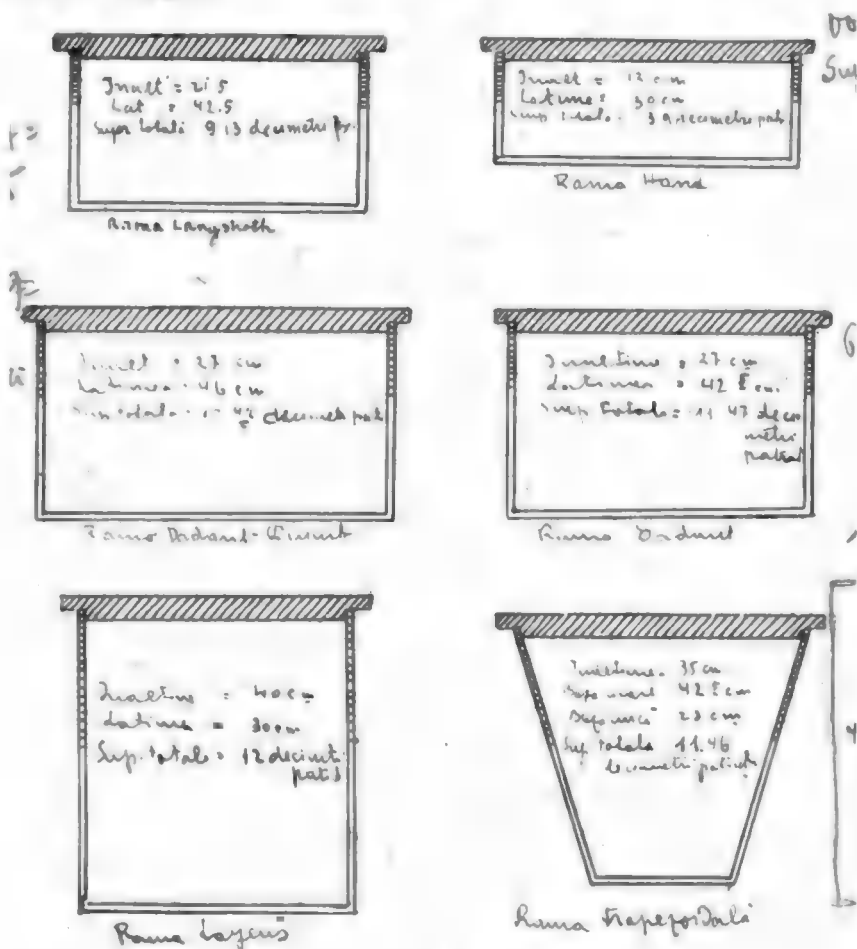 Inalt = 21.5
Lat = 42.5
Supr totală 9.13 decimetri p.
Rama Langstroth
Inalt = 13 cm
Latime = 30 cm
Sup. totala = 3.9 decimetri pat.
Rama Hand
Sup
Inalt = 27 cm
Latimea = 46 cm
Sup. totala = 12.42 decimetri pat
Rama Dadant-
Inaltime = 27 cm
Latimea = 42.5 cm.
Sup Totala = 11.47 deci
metri
patrati
Rama Dadant
Inaltime = 40 cm
Latimea = 30 cm
Sup. totala = 12 decimt.
patr.
Rama Layens
Inaltimea = 35 cm
Baza mare 42.5 cm
Baza mică 23 cm
Sup totala 11.46
decimetri patrati
Rama Trapezoidală
4